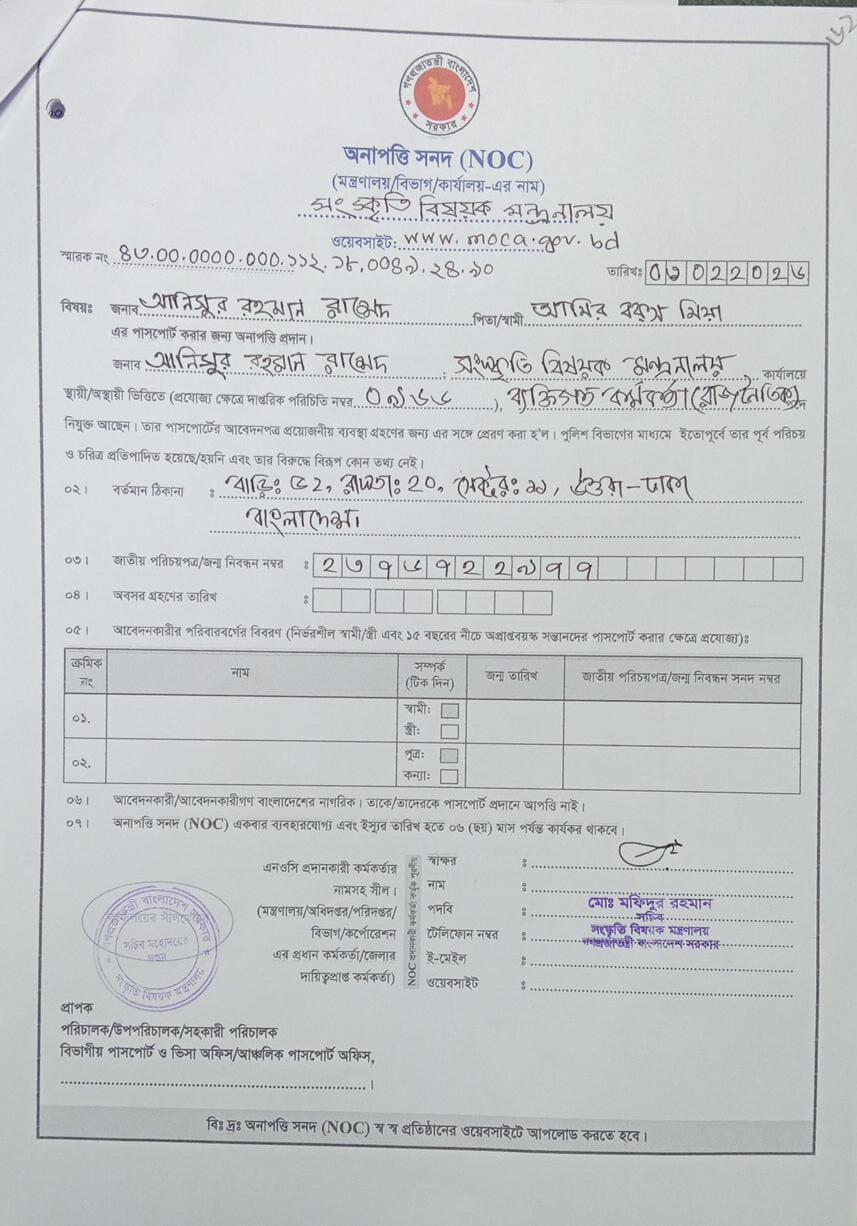 গণপ্রজাতন্ত্রী বাংলাদেশ
সরকার
অনাপত্তি সনদ (NOC)
(মন্ত্রণালয়/বিভাগ/কার্যালয়-এর নাম)
সংস্কৃতি বিষয়ক মন্ত্রনালয়
ওয়েবসাইট: www.moca.gov.bd
স্মারক নং ৪৩.00.0000.000.১১২.১৮.00৪৯.২৪.৯০ তারিখঃ ০৩০২২০২৬
বিষয়ঃ জনাব আনিসুর রহমান রাশেদ পিতা/স্বামী আমির বকস মিয়া
এর পাসপোর্ট করার জন্য অনাপত্তি প্রদান।
জনাব আনিসুর রহমান রাশেদ , সংস্কৃতি বিষয়ক মন্ত্রনালয় কার্যালয়ে
স্থায়ী/অস্থায়ী ভিত্তিতে (প্রযোজ্য ক্ষেত্রে দাপ্তরিক পরিচিতি নম্বর ০৯৬৬ ), ব্যক্তিগত কর্মকর্তা (রাজনৈতিক) পদে
নিযুক্ত আছেন। তার পাসপোর্টের আবেদনপত্র প্রয়োজনীয় ব্যবস্থা গ্রহণের জন্য এর সঙ্গে প্রেরণ করা হ'ল। পুলিশ বিভাগের মাধ্যমে ইতোপূর্বে তার পূর্ব পরিচয়
ও চরিত্র প্রতিপাদিত হয়েছে/হয়নি এবং তার বিরুদ্ধে বিরূপ কোন তথ্য নেই।
০২। বর্তমান ঠিকানা : বাড়ি: ৫২, রাস্তা: ২০, সেক্টর: ১১, উত্তরা-ঢাকা
বাংলাদেশ।
০৩। জাতীয় পরিচয়পত্র/জন্ম নিবন্ধন নম্বর : ২৩৭৬৭২২৯৭৭
০৪। অবসর গ্রহণের তারিখ :
০৫। আবেদনকারীর পরিবারবর্গের বিবরণ (নির্ভরশীল স্বামী/স্ত্রী এবং ১৫ বছরের নীচে অপ্রাপ্তবয়স্ক সন্তানদের পাসপোর্ট করার ক্ষেত্রে প্রযোজ্য)ঃ
ক্রমিক নং নাম সম্পর্ক (টিক দিন) জন্ম তারিখ জাতীয় পরিচয়পত্র/জন্ম নিবন্ধন সনদ নম্বর
০১. স্বামী:
স্ত্রী:
০২. পুত্র:
কন্যা:
০৬। আবেদনকারী/আবেদনকারীগণ বাংলাদেশের নাগরিক। তাকে/তাদেরকে পাসপোর্ট প্রদানে আপত্তি নাই।
০৭। অনাপত্তি সনদ (NOC) একবার ব্যবহারযোগ্য এবং ইস্যুর তারিখ হতে ০৬ (ছয়) মাস পর্যন্ত কার্যকর থাকবে।
এনওসি প্রদানকারী কর্মকর্তার
নামসহ সীল।
(মন্ত্রণালয়/অধিদপ্তর/পরিদপ্তর/
বিভাগ/কর্পোরেশন
এর প্রধান কর্মকর্তা/জেলার
দায়িত্বপ্রাপ্ত কর্মকর্তা)
NOC প্রদানকারী কর্মকর্তা কর্তৃক পূরণীয়
স্বাক্ষর :
নাম :
পদবি :
টেলিফোন নম্বর :
ই-মেইল :
ওয়েবসাইট :
মোঃ মফিদুর রহমান
সচিব
সংস্কৃতি বিষয়ক মন্ত্রণালয়
গণপ্রজাতন্ত্রী বাংলাদেশ সরকার
গণপ্রজাতন্ত্রী বাংলাদেশ সরকার
সচিব মহোদয়ের
দপ্তর
সংস্কৃতি বিষয়ক মন্ত্রণালয়
প্রাপক
পরিচালক/উপপরিচালক/সহকারী পরিচালক
বিভাগীয় পাসপোর্ট ও ভিসা অফিস/আঞ্চলিক পাসপোর্ট অফিস,
বিঃ দ্রঃ অনাপত্তি সনদ (NOC) স্ব স্ব প্রতিষ্ঠানের ওয়েবসাইটে আপলোড করতে হবে।